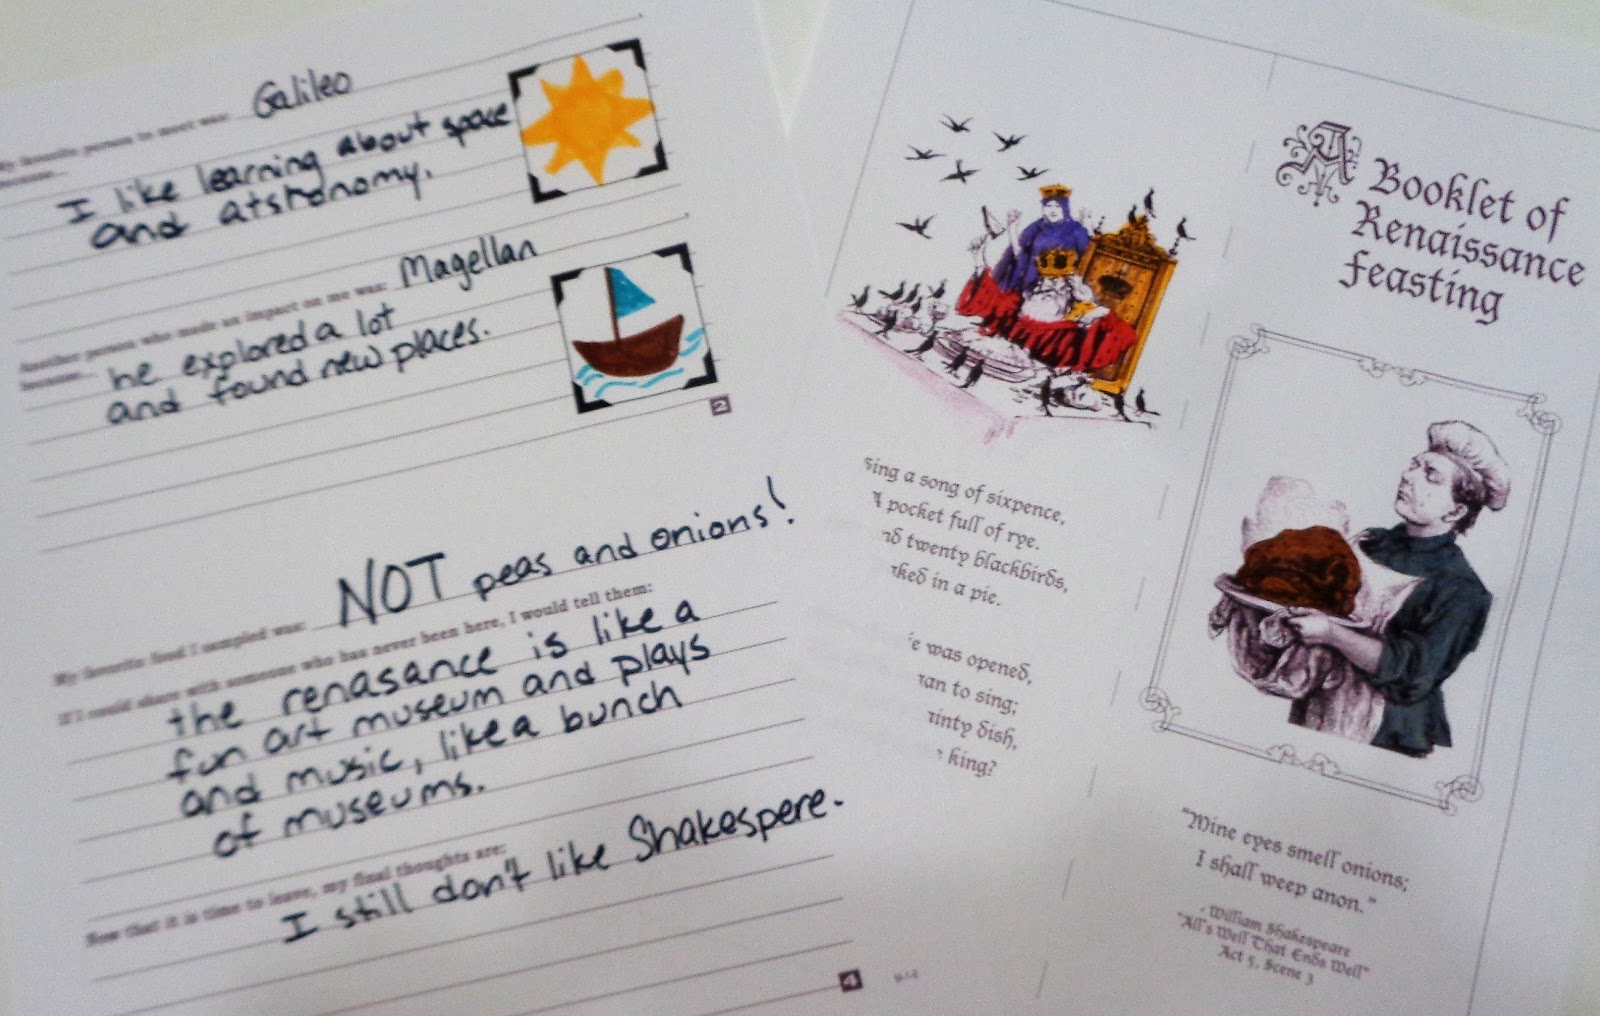 My favorite person to meet was: Galileo
because...
I like learning about space
and atstronomy.
Another person who made an impact on me was: Magellan
because...
he explored a lot
and found new places.
2
My favorite food I sampled was: NOT peas and onions!
If I could share with someone who has never been here, I would tell them:
the renasance is like a
fun art museum and plays
and music, like a bunch
of museums.
Now that it is time to leave, my final thoughts are:
I still don't like Shakespere.
4
Sing a song of sixpence,
A pocket full of rye.
nd twenty blackbirds,
ked in a pie.
e was opened,
an to sing;
inty dish,
king?
A Booklet of
Renaissance
Feasting
"Mine eyes smell onions;
I shall weep anon."
- William Shakespeare
"All's Well That Ends Well"
Act 5, Scene 3